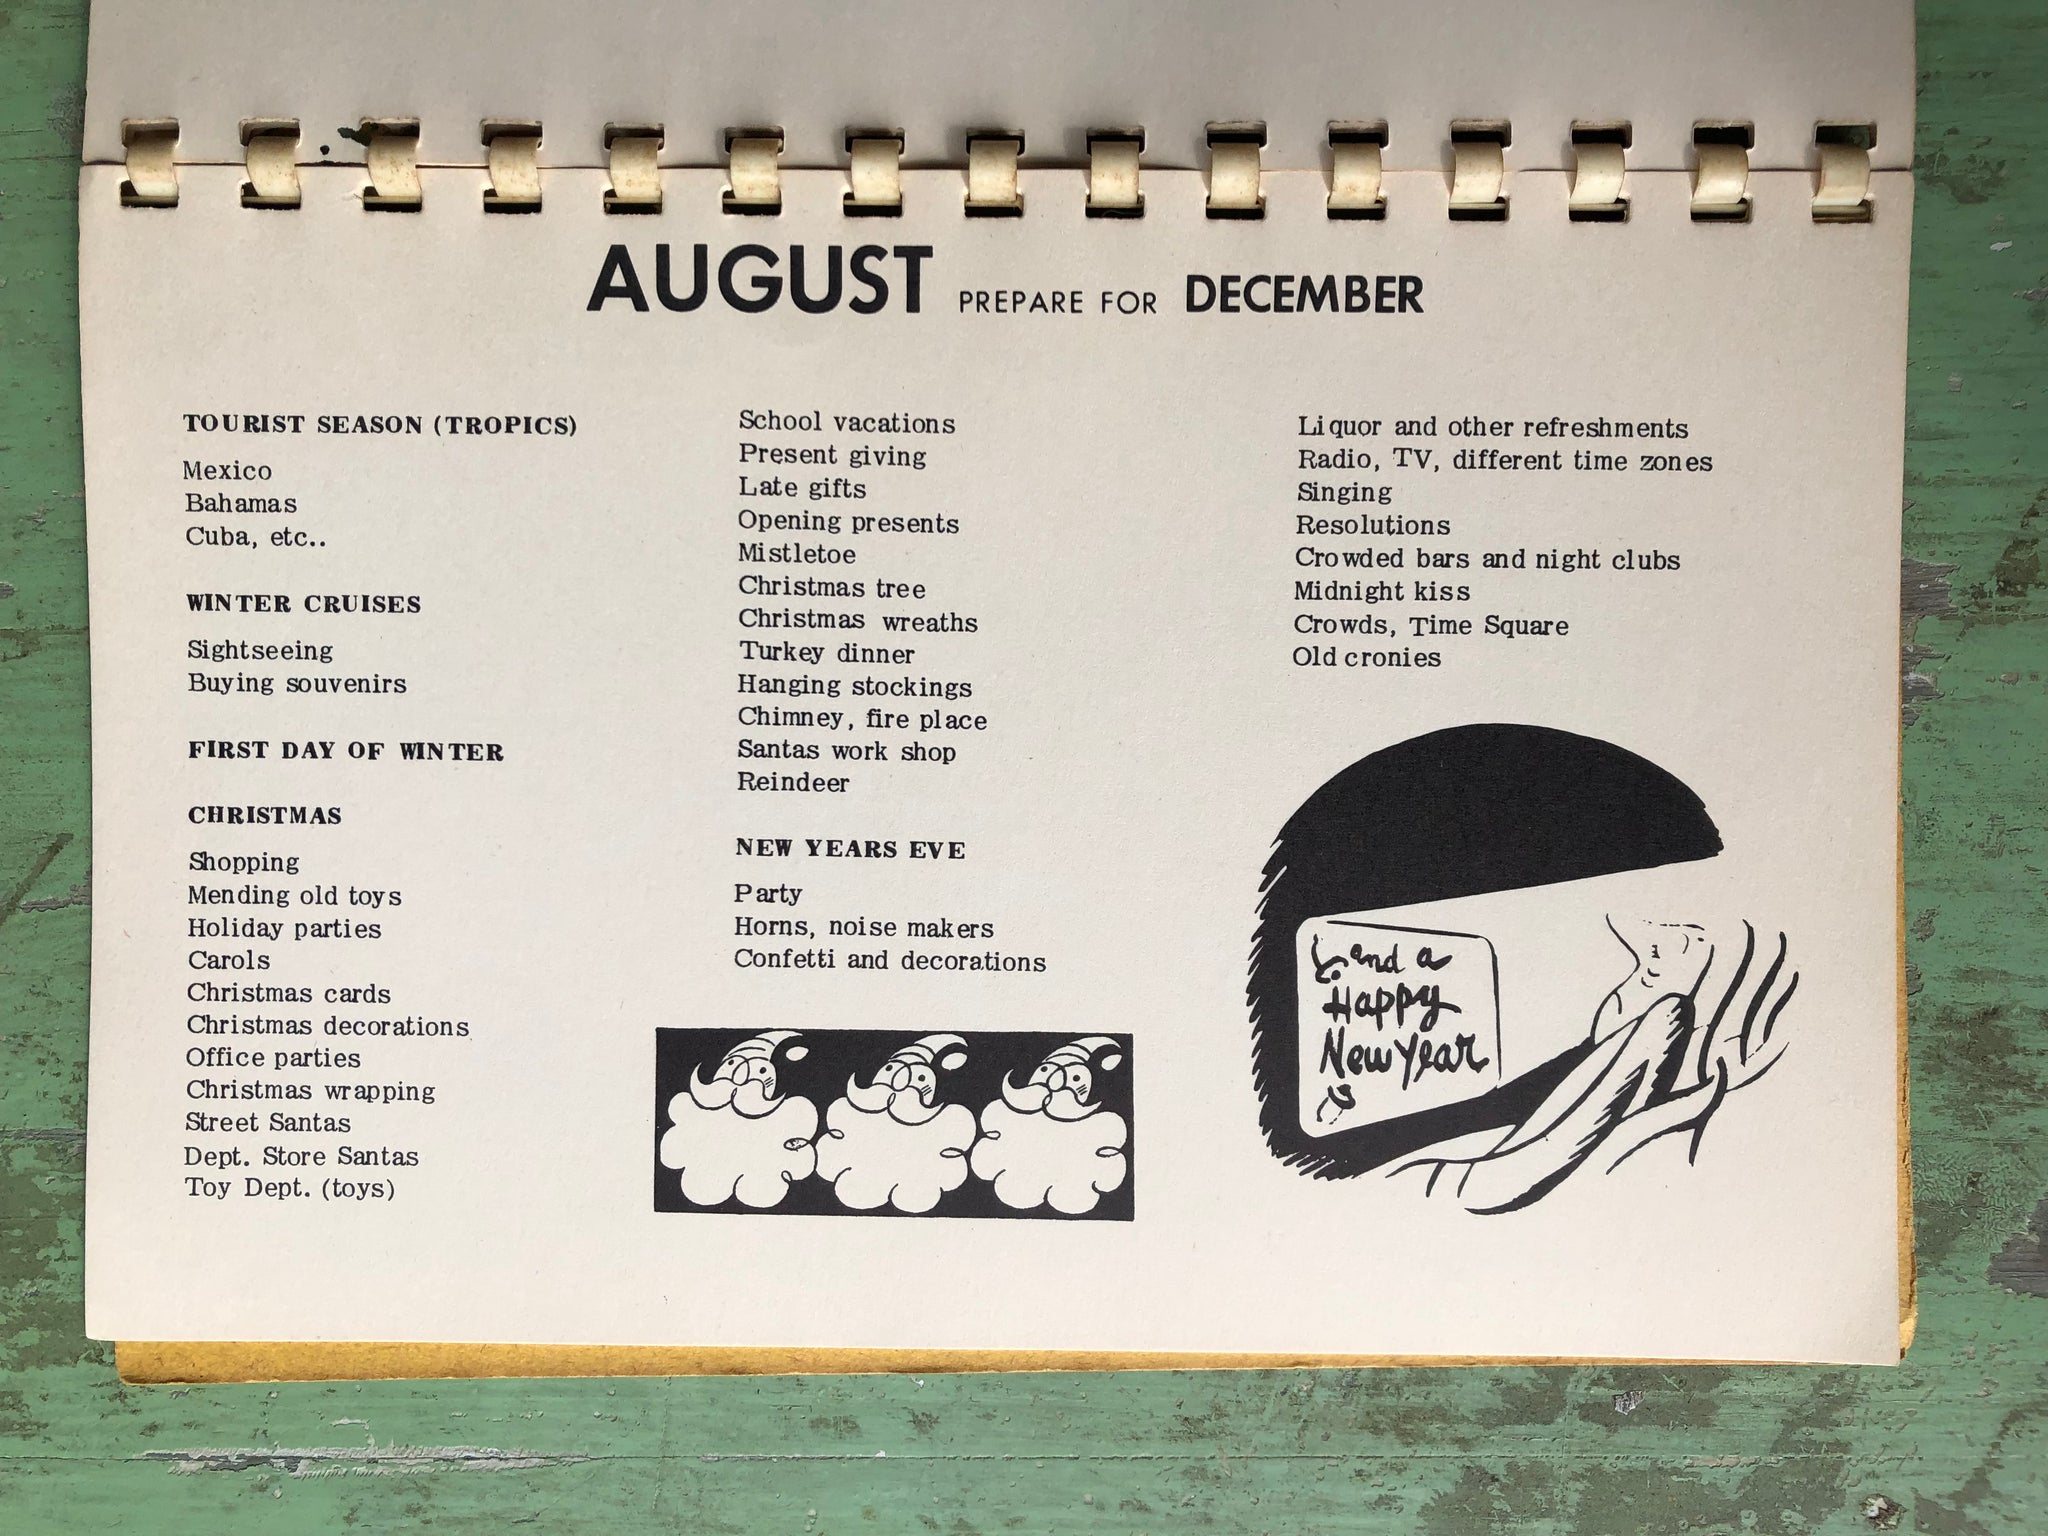 AUGUST PREPARE FOR DECEMBER
TOURIST SEASON (TROPICS)
Mexico
Bahamas
Cuba, etc..
WINTER CRUISES
Sightseeing
Buying souvenirs
FIRST DAY OF WINTER
CHRISTMAS
Shopping
Mending old toys
Holiday parties
Carols
Christmas cards
Christmas decorations
Office parties
Christmas wrapping
Street Santas
Dept. Store Santas
Toy Dept. (toys)
School vacations
Present giving
Late gifts
Opening presents
Mistletoe
Christmas tree
Christmas wreaths
Turkey dinner
Hanging stockings
Chimney, fire place
Santas work shop
Reindeer
NEW YEARS EVE
Party
Horns, noise makers
Confetti and decorations
Liquor and other refreshments
Radio, TV, different time zones
Singing
Resolutions
Crowded bars and night clubs
Midnight kiss
Crowds, Time Square
Old cronies
and a
Happy
New Year